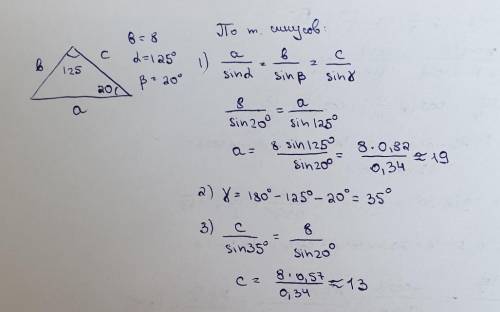 По т. синусов:
в = 8
α = 125°
β = 20°
в
c
125
20
a
1) a/sinα = в/sinβ = c/sinγ
8/sin20° = a/sin125°
a = 8·sin125°/sin20° = 8·0,82/0,34 ≈ 19
2) γ = 180° - 125° - 20° = 35°
3) c/sin35° = 8/sin20°
c = 8·0,57/0,34 ≈ 13